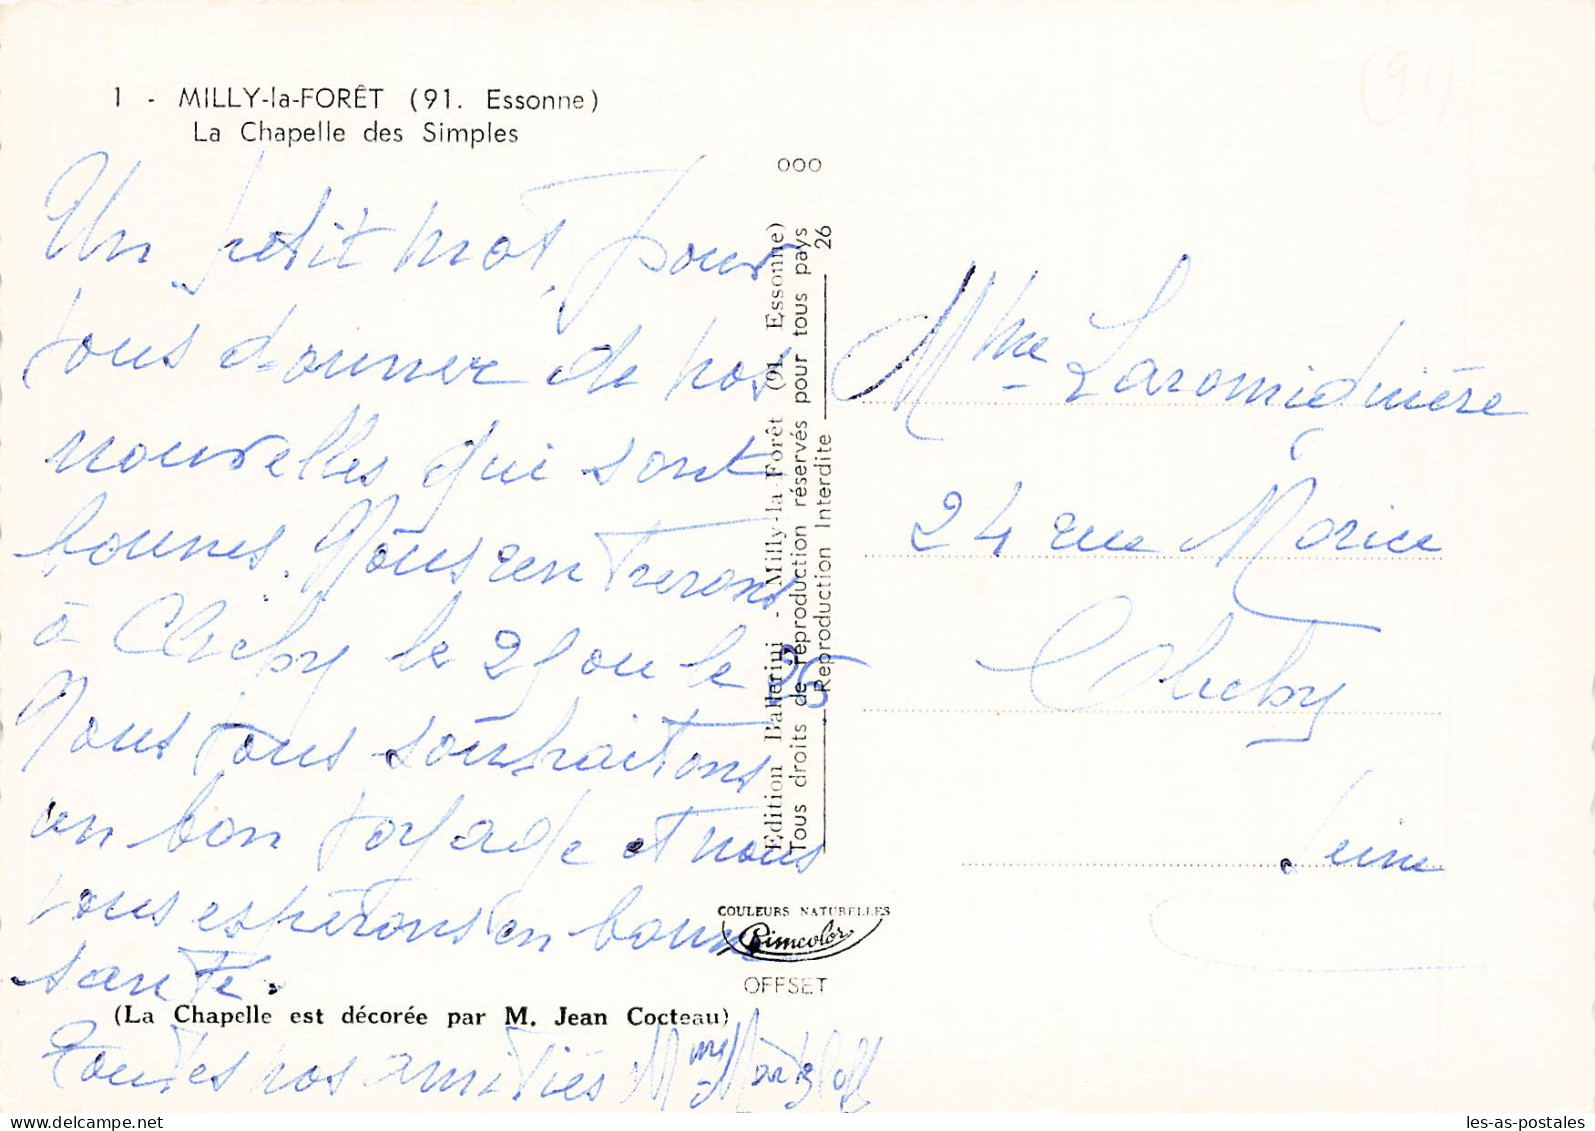 1 - MILLY-la-FORÊT (91. Essonne)
La Chapelle des Simples
Un petit mot pour
vous donner de nos
nouvelles qui sont
bonnes. Nous rentrerons
à Clichy le 25 ou le 26
Nous vous souhaitons
un bon voyage et nous
vous espérons en bonne
santé.
(La Chapelle est décorée par M. Jean Cocteau)
Toutes nos amitiés Mme
ooo
Edition Ballerini - Milly-la-Forêt (91. Essonne)
Tous droits de reproduction réservés pour tous pays
Reproduction Interdite
26
COULEURS NATURELLES
Cimcolor
OFFSET
Mme Laromiguière
24 rue Morice
Clichy
Seine
les-as-postales